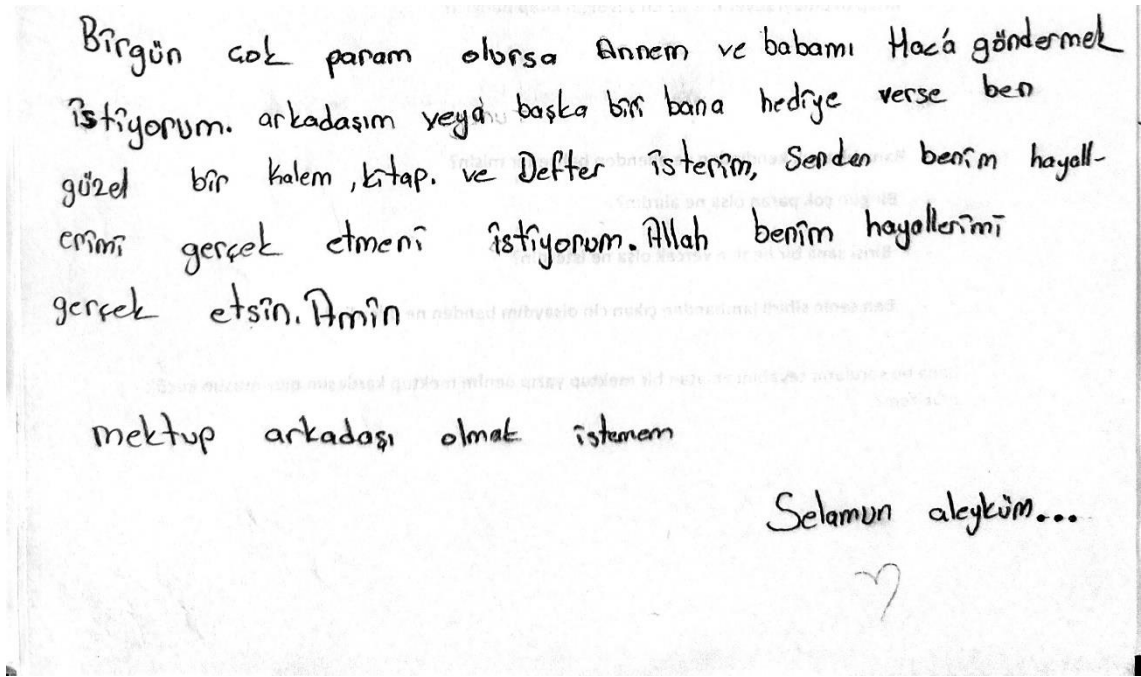 Birgün çok param olursa Annem ve babamı Hac'a göndermek
istiyorum. arkadaşım veya başka biri bana hediye verse ben
güzel bir kalem, kitap. ve Defter isterim, Senden benim hayall-
erimi gerçek etmeni istiyorum. Allah benim hayallerimi
gerçek etsin. Amin
mektup arkadaşı olmak istemem
Selamun aleyküm...